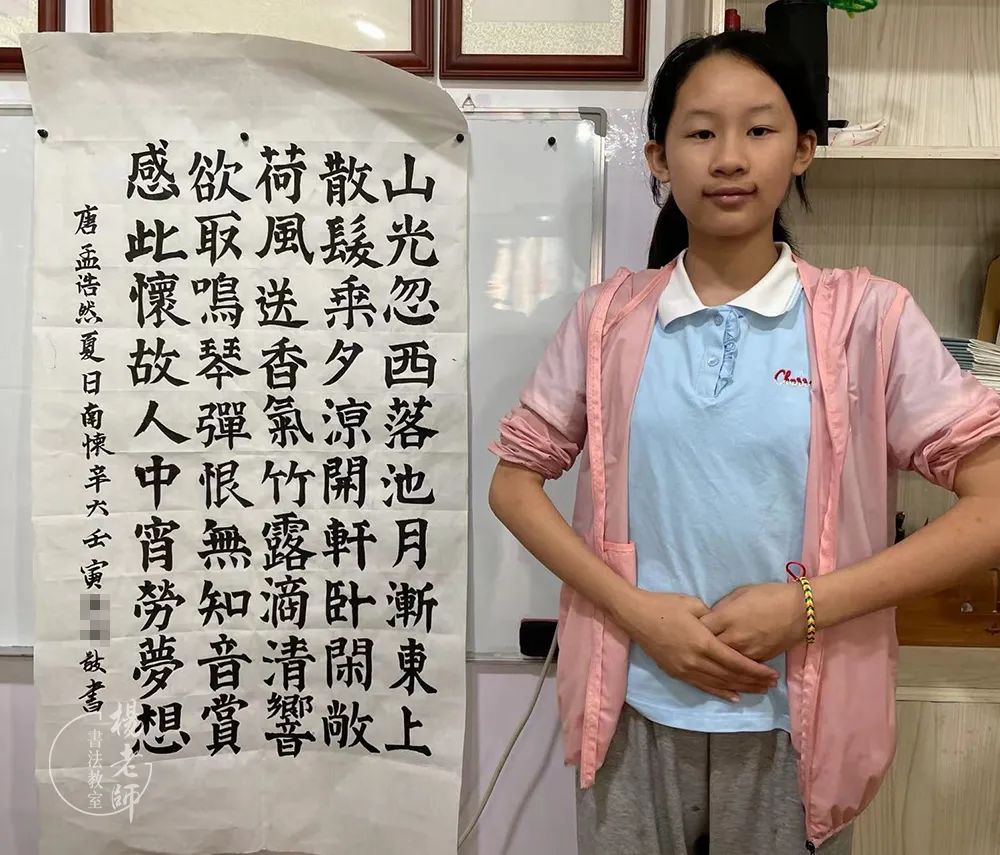 山光忽西落池月漸東上
散髮乘夕涼開軒卧閑敞
荷風送香氣竹露滴清響
欲取鳴琴彈恨無知音賞
感此懷故人中宵勞夢想
唐孟浩然夏日南懷辛大壬寅
敬書
楊老師
書法教室